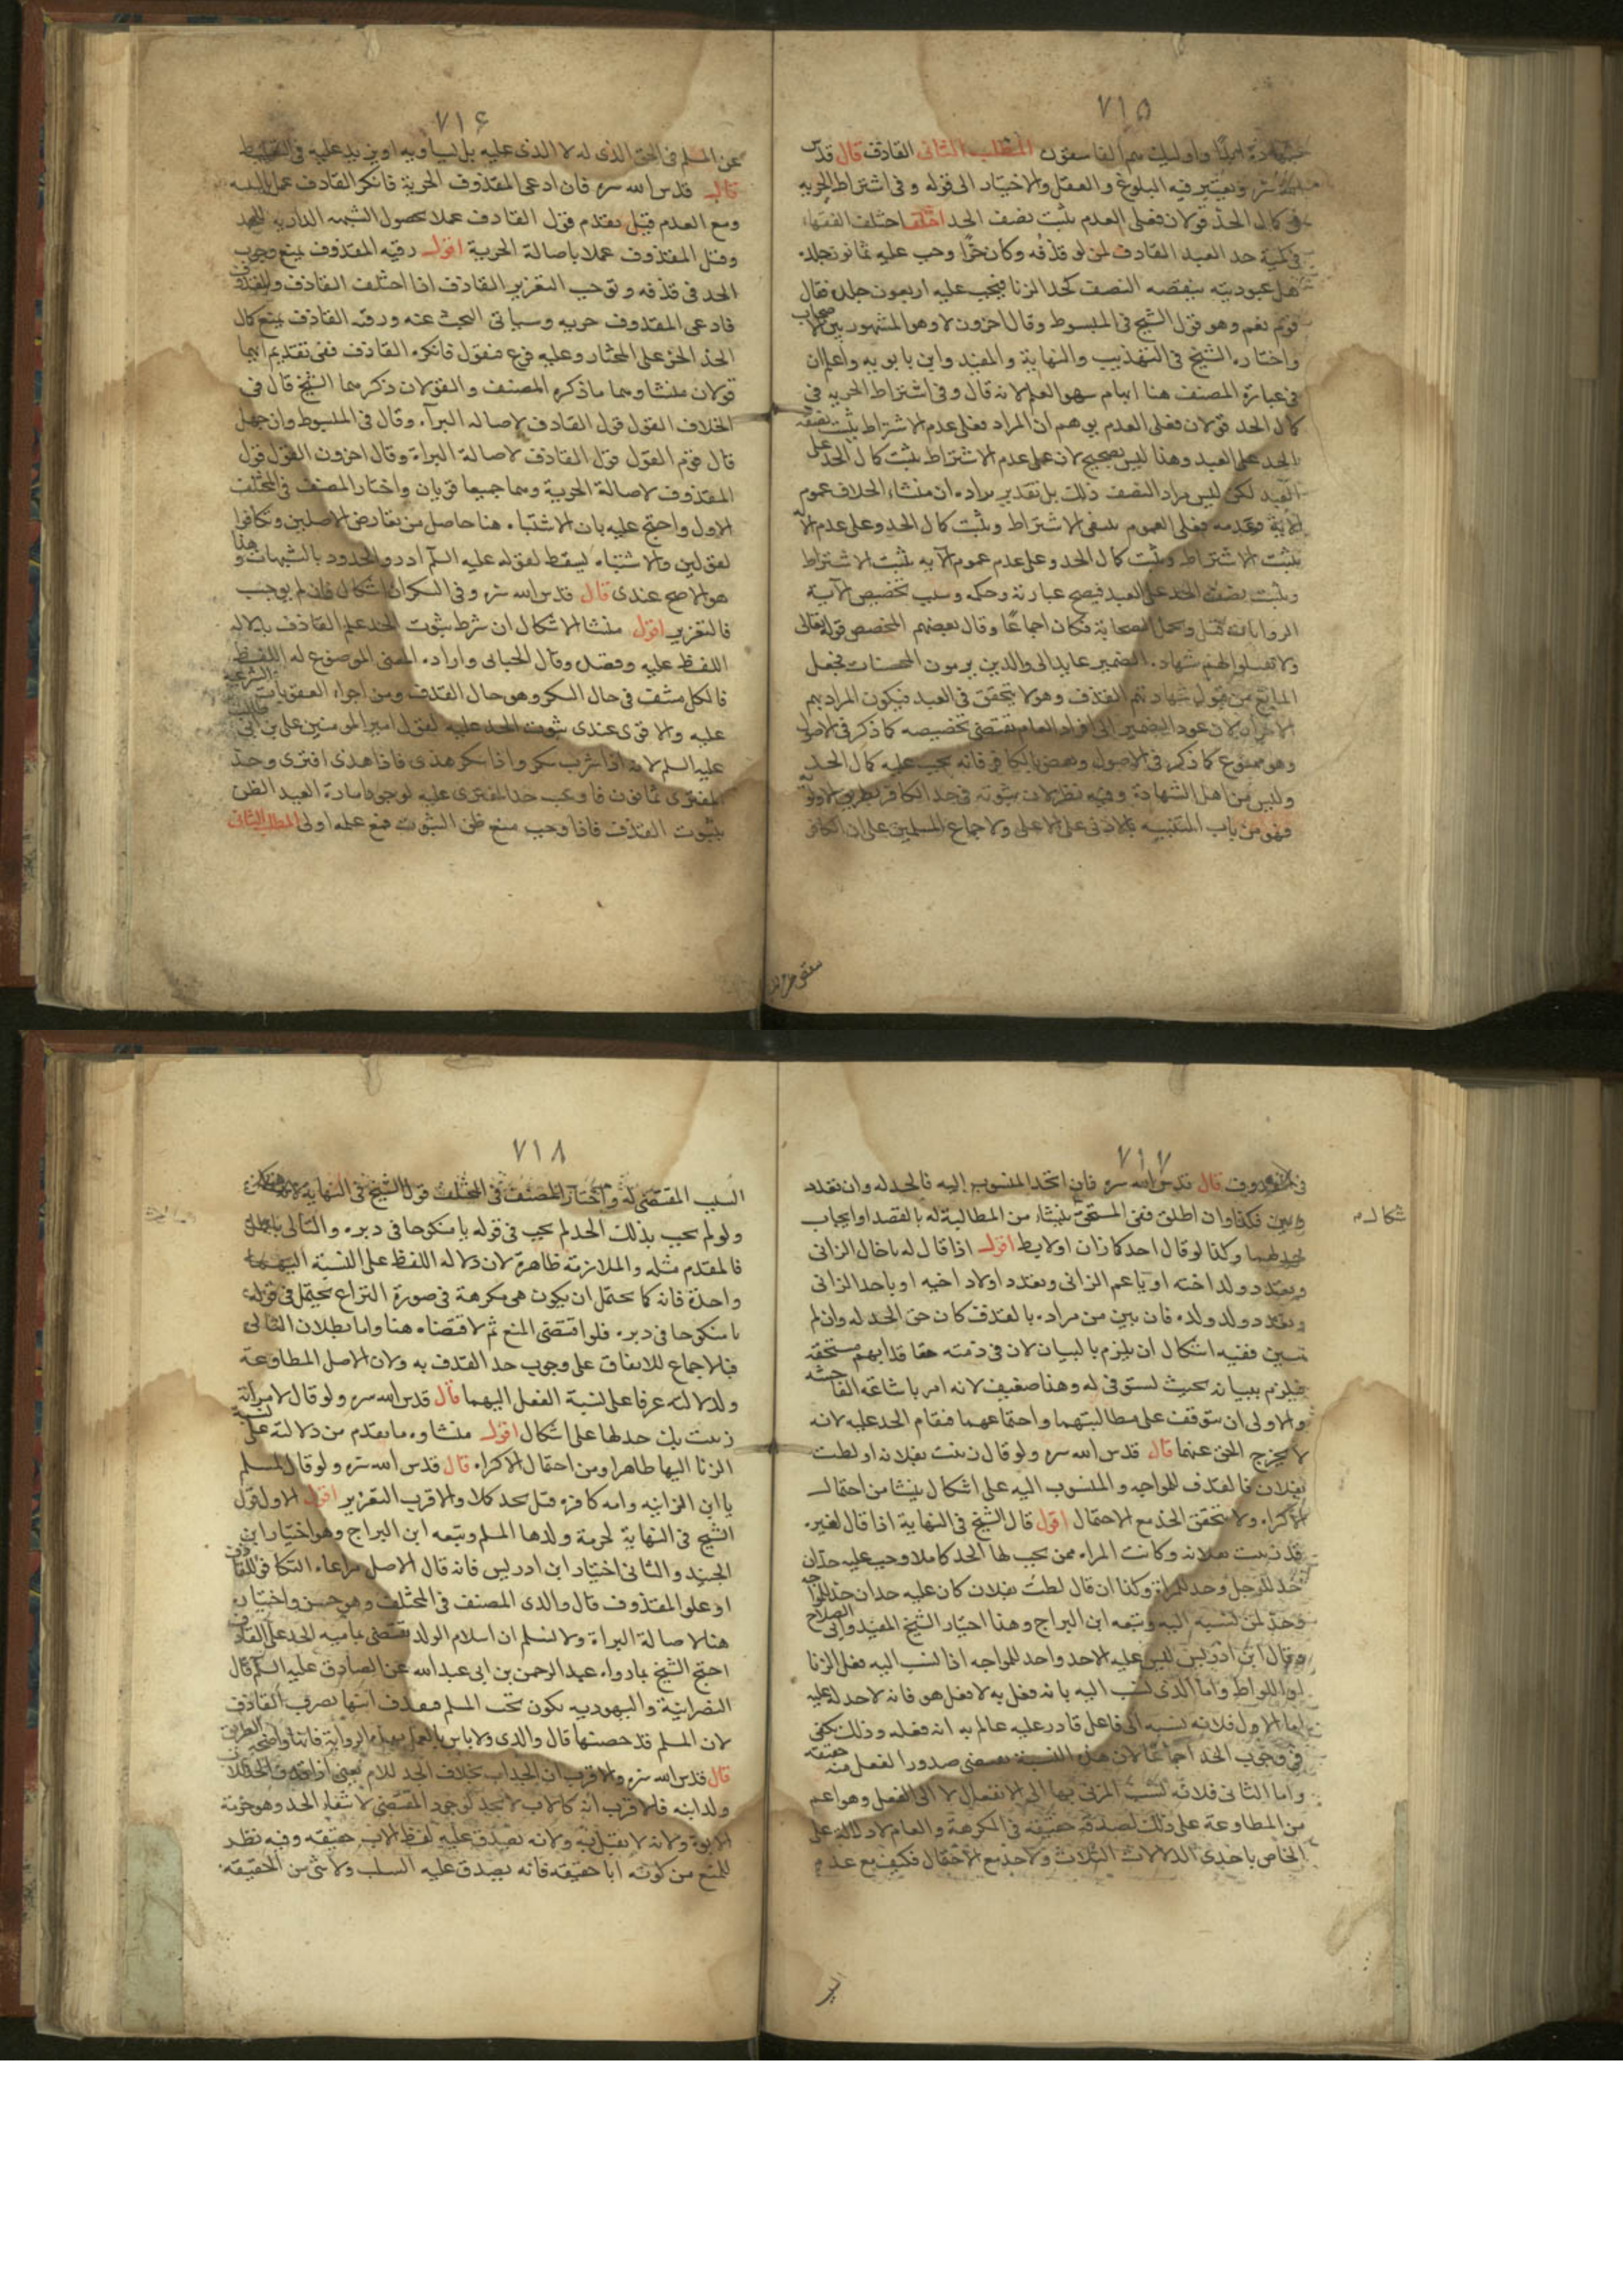 ٧١٥
شهادة ابدًا واوليك هم الفاسقون المطلب الثانى القاذف قال قدس
سره ويعتبر فيه البلوغ والعقل والاختيار الى قوله وفى اشتراط الحريه
فى كمال الحد قولان فعلى العدم يثبت نصف الحد اقول اختلف الفقهاء
فى كمية حد العبد القاذف لمن لو قذفه وكان حرًا وجب عليه ثمانون جلده
هل عبوديته ينقصه النصف كحد الزنا فيجب عليه اربعون جلده فقال
قوم نعم وهو قول الشيخ فى المبسوط وقال اخرون لا وهو المشهور بين الاصحاب
واختاره الشيخ فى التهذيب والنهاية والمفيد وابن بابويه واعلم ان
فى عبارة المصنف هنا ابهام سهو القلم لانه قال وفى اشتراط الحريه فى
كمال الحد قولان فعلى العدم يوهم ان المراد فعلى عدم الاشتراط يثبت نصف
الحد على العبد وهذا ليس بصحيح لان على عدم الاشتراط يثبت كمال الحد على
العبد لكن ليس مراد المصنف ذلك بل تقدير مراده ان منشاء الخلاف عموم
الاية وعدمه فعلى العموم ينتفى الاشتراط ويثبت كمال الحد وعلى عدم الا
يثبت الاشتراط ويثبت كمال الحد وعلى عدم عموم الايه يثبت الاشتراط
ويثبت نصف الحد على العبد فيصح عبارته وحكمه وسبب تخصيص الآية
الروايات وعمل الصحابة فكان اجماعًا وقال بعضهم المخصص قوله تعالى
ولا تقبلوا لهم شهاده الضمير عايد الى والذين يرمون المحصنات فجعل
المانع من قبول شهادتهم القذف وهو لا يتحقق فى العبد فيكون المراد بهم
الاحرار لان عود الضمير الى افراد العام يقتضى تخصيصه كما ذكر فى الاصول
وهو ممنوع كما ذكر فى الاصول ونقض بالكافر فانه يجب عليه كمال الحد
وليس من اهل الشهادة وفيه نظر لان ثبوته فى حد الكافر بطريق الاولى
فهو من باب التنبيه بالادنى على الاعلى ولاجماع المسلمين على ان الكافر
٧١٦
عن المسلم فى الحق الذى له لا الذى عليه بل يساويه او يزيد عليه فى التغليظ
قال قدس الله سره فان ادعى المقذوف الحرية فانكر القاذف عمل بالبينه
ومع العدم قيل يقدم قول القاذف عملا بحصول الشبهه الداريه للحد
وقيل المقذوف عملا باصالة الحرية اقول رقيه المقذوف يمنع وجوب
الحد فى قذفه وتوجب التعزير القاذف اذا اختلف القاذف والمقذوف
فادعى المقذوف حريه وسياتى البحث عنه ورقه القاذف يمنع كمال
الحد الحق على المختار وعليه فرع فنقول فانكره القاذف ففى تقديم ايهما
قولان منشاوهما ما ذكره المصنف والقولان ذكرهما الشيخ قال فى
الخلاف القول قول القاذف لاصاله البراءه وقال فى المبسوط وان جهل
قال قوم القول قول القاذف لاصالة البراءة وقال اخرون القول قول
المقذوف لاصالة الحرية وهما جميعا قويان واختار المصنف فى المختلف
الاول واحتج عليه بان الاشتباه هنا حاصل من تعارض الاصلين وتكافوا
لقولين والاشتباه يسقط لقوله عليه السلم ادرو الحدود بالشبهات وهذا
هو الاصح عندى قال قدس الله سره وفى السكران اشكال فان لم يوجب
فالتعزير اقول منشا الاشكال ان شرط ثبوت الحد علم القاذف بدلاله
اللفظ عليه وقصد وقال الجبائى واراده المعنى الموضوع له اللفظ
فالكل منتف فى حال السكر وهو حال القذف ومن اجراء العقوبات الشرعية
عليه والاقوى عندى ثبوت الحد عليه لقول امير المومنين على بن ابى طالب
عليه السلم لانه اذا شرب سكر واذا سكر هذى فاذا هذى افترى وحد
المفترى ثمانون فاوجب حد المفترى عليه لوجود امارة العبد الظن
بثبوت القذف فاذا وجب مع ظن الثبوت فمع علمه اولى المطلب الثانى
٧١٧
فى المقذوف قال قدس الله سره فان اتحد المنسوب اليه فالحد له وان تعدد
وبين فكذا وان اطلق ففى المستحق ينشاء من المطالبة له بالقصد او ايجاب
حد لهما وكذا لو قال احدكما زان او لايط اقول اذا قال له يا خال الزانى
وتعدد ولد اخته او يا عم الزانى وتعدد اولاد اخيه او يا جد الزانى
وتعدد ولد ولده فان بين من مراده بالقذف كان حق الحد له وان لم
يبين ففيه اشكال ان يلزم بالبيان لان فى ذمته حقا قد ابهم مستحقه
فيلزم ببيانه بحيث يستوفى له وهذا ضعيف لانه امر باشاعة الفاحشه
والاولى ان يتوقف على مطالبتهما واجتماعهما فيقام الحد عليه لانه
لا يخرج الحق عنهما قال قدس الله سره ولو قال زنيت بفلانه او لطت
بفلان فالقذف للمواجه والمنسوب اليه على اشكال ينشا من احتمال
الاكراه ولا يتحقق الحد مع الاحتمال اقول قال الشيخ فى النهاية اذا قال لغيره
قد زنيت بفلانه وكانت المراه ممن يجب لها الحد كاملا وجب عليه حدان
حد للرجل وحد للمراة وكذا ان قال لطت بفلان كان عليه حدان حد للمواجه
وحد لمن نسبه اليه وتبعه ابن البراج وهذا اختيار الشيخ المفيد وابى الصلاح
وقال ابن ادريس ليس عليه الا حد واحد للمواجه اذا نسب اليه فعل الزنا
او اللواط واما الذى نسب اليه بانه فعل به لا فعل هو فانه لا حد له عليه
اما الاول فلانه نسبه الى فاعل قادر عليه عالم به انه فعله وذلك يكفى
فى وجوب الحد اجماعًا لان هذه النسبة تقتضى صدور الفعل منه حقيقه
واما الثانى فلانه نسب المزنى بها الى الانفعال لا الى الفعل وهو اعم
من المطاوعة على ذلك لصدقه حقيقه فى المكرهة والعام لا دلالة له على
الخاص باحدى الدلالات الثلاث ولا حد مع الاحتمال فكيف مع عدم
٧١٨
السبب المقتضى له واختار المصنف فى المختلف قول الشيخ فى النهاية
ولو لم يجب بذلك الحد لم يجب فى قوله يا منكوحا فى دبره والتالى باطل
فالمقدم مثله والملازمة ظاهرة لان دلاله اللفظ على النسبة اليهما
واحدة فانه كما يحتمل ان يكون هى مكرهة فى صورة النزاع يحتمل فى قوله
يا منكوحا فى دبره فلو اقتضى المنع ثم لاقتضاه هنا واما بطلان التالى
فبالاجماع للاتفاق على وجوب حد القذف به ولان الاصل المطاوعة
ولدلالته عرفا على نسبة الفعل اليهما قال قدس الله سره ولو قال لامراته
زنيت بك حد لها على اشكال اقول منشاوه ما تقدم من دلالته على نسبة
الزنا اليها ظاهرا ومن احتمال الاكراه قال قدس الله سره ولو قال للمسلم
يا ابن الزانيه وامه كافره قيل يحد كملا والاقرب التعزير اقول الاول قول
الشيخ فى النهاية لحرمة ولدها المسلم وتبعه ابن البراج وهو اختيار ابن
الجنيد والثانى اختيار ابن ادريس فانه قال الاصل مراعاه التكافى للقاذف
او علو المقذوف قال والدى المصنف فى المختلف وهو حسن واختياره
هنا لاصالة البراءة ولا نسلم ان اسلام الولد يقتضى تمامية الحد على القاذف
احتج الشيخ بما رواه عبد الرحمن بن ابى عبد الله عن الصادق عليه السلم قال
النصرانية واليهوديه تكون تحت المسلم فيقذف ابنها يضرب القاذف
لان المسلم قد حصنها قال والدى ولا باس بالعمل بهذه الرواية فانها واضحه الطريق
قال قدس الله سره والاقرب ان الجد اب بخلاف الجد للام يعنى اذا قذف الجد
ولد ابنه فالاقرب انه كالاب لا يحد لوجود المقتضى لانتفاء الحد وهو حرمة
الابوة ولانه لا يقتل به ولانه يصدق عليه لفظ الاب حقيقه وفيه نظر
للمنع من كونه ابا حقيقه فانه يصدق عليه السلب ولا شى من الحقيقه